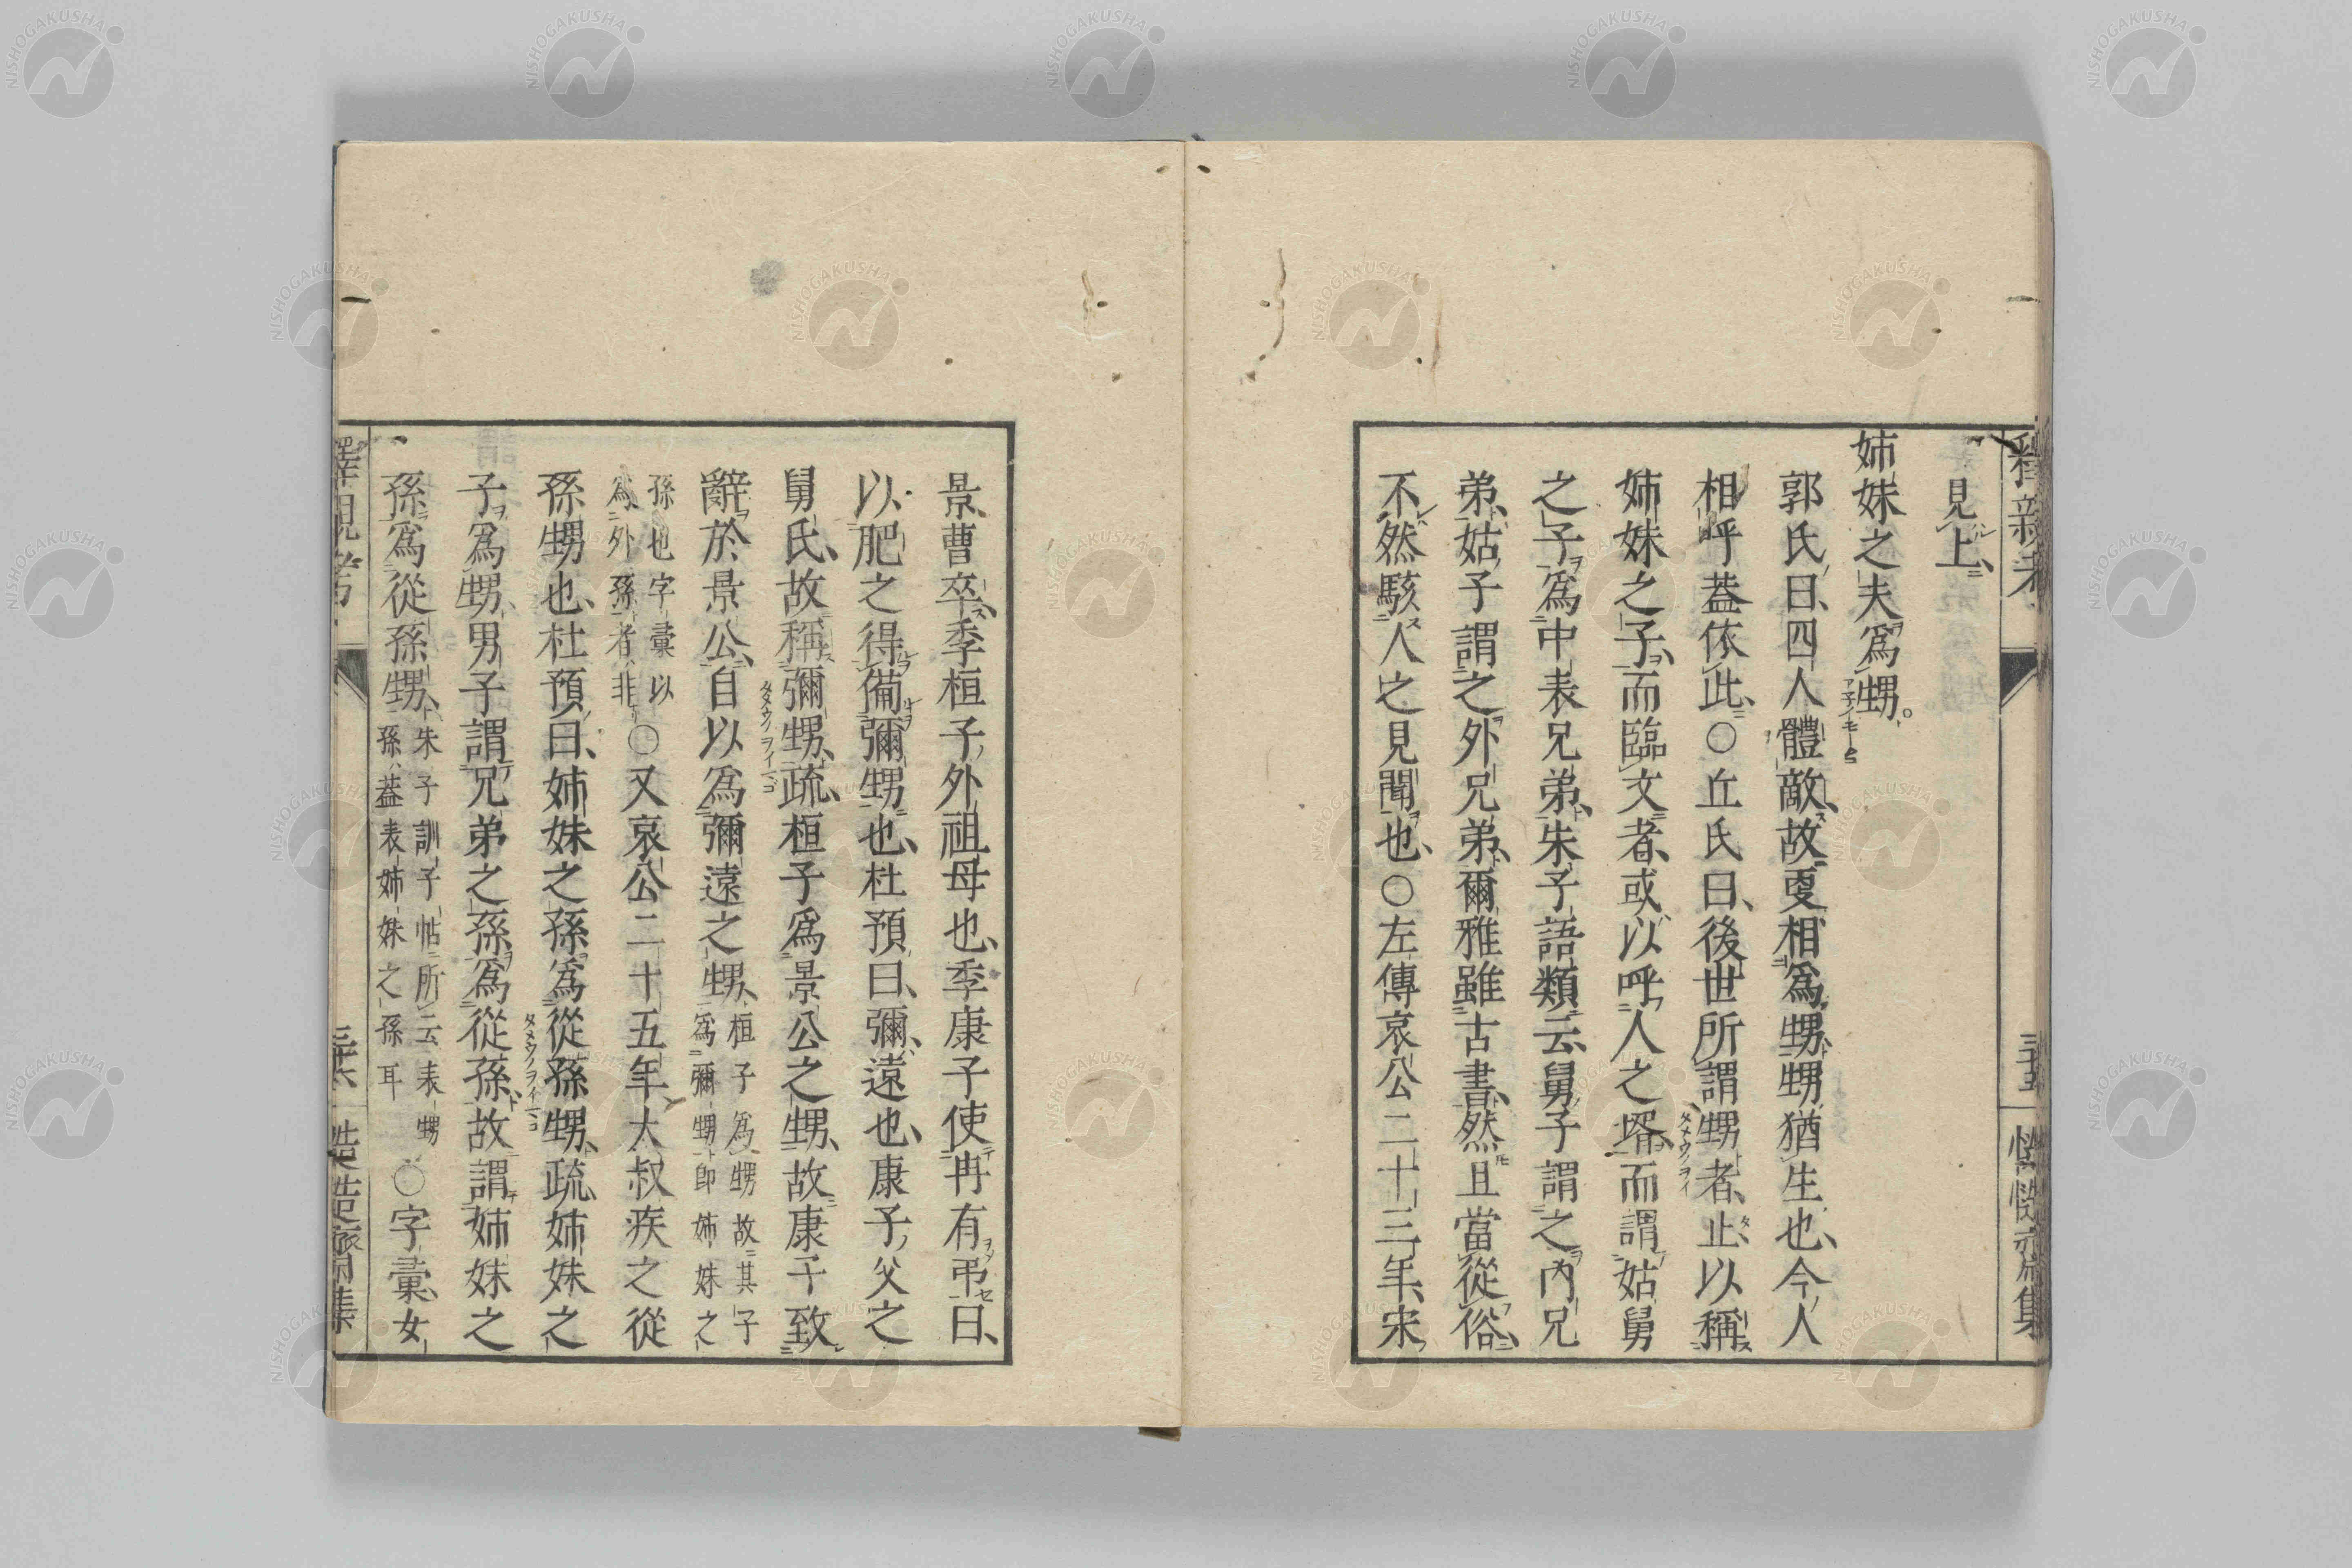 見上、
姉妹之夫爲甥。
郭氏曰、四人體敵、故更相爲甥、甥猶生也、今人
相呼葢依此、○丘氏曰、後世所謂甥者、止以稱
姉妹之子、而臨文者、或以呼人之壻、而謂姑舅
之子爲中表兄弟、朱子語類云、舅子謂之内兄
弟、姑子謂之外兄弟、爾雅雖古書、然且當從俗、
不然駭人之見聞也、○左傳哀公二十三年、宋
景曹卒、季桓子外祖母也、季康子使冉有弔曰、
以肥之得備彌甥也、杜預曰、彌、遠也、康子父之
舅氏、故稱彌甥、疏、桓子爲景公之甥、故康子致
辭於景公、自以爲彌遠之甥、桓子爲甥故其子
爲彌甥即姉妹之
孫也字彙以
爲外孫者、非
○又哀公二十五年大叔疾之從
孫甥也、杜預曰、姉妹之孫爲從孫甥、疏、姉妹之
子爲甥、男子謂兄弟之孫爲從孫、故謂姉妹之
孫爲從孫甥、朱子訓子帖所云表甥
孫、葢表姉妹之孫耳
○字彙、女